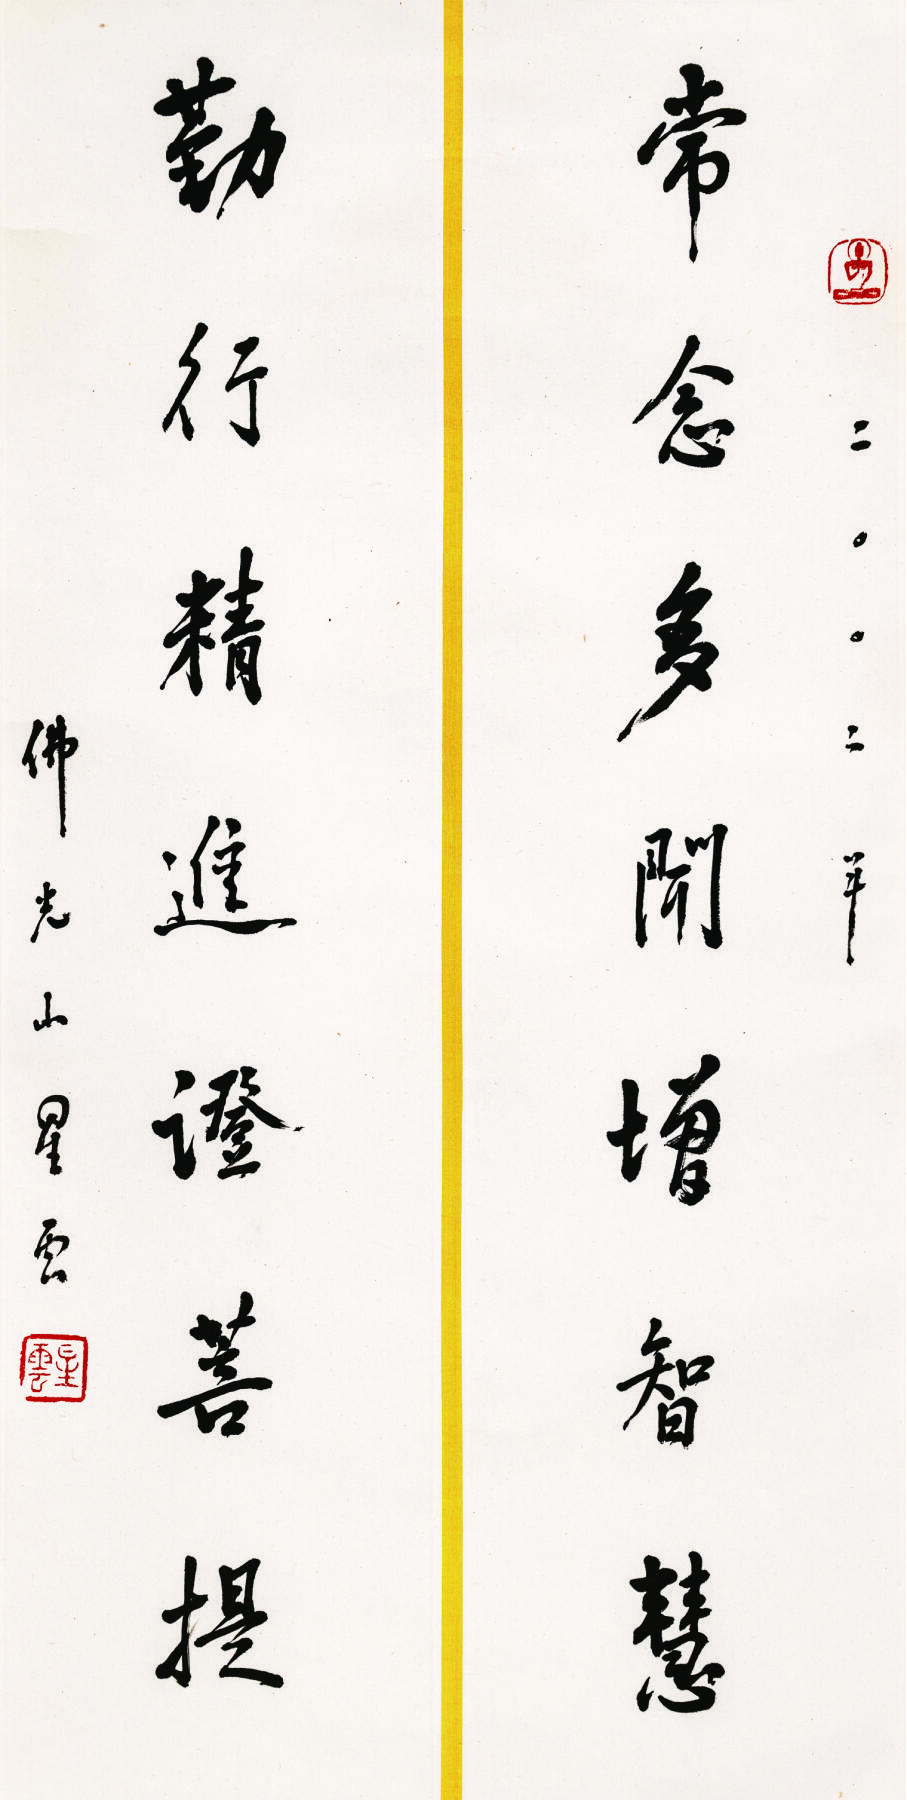 二〇〇二年
常念多聞增智慧
勤行精進證菩提
佛光山星雲
星雲